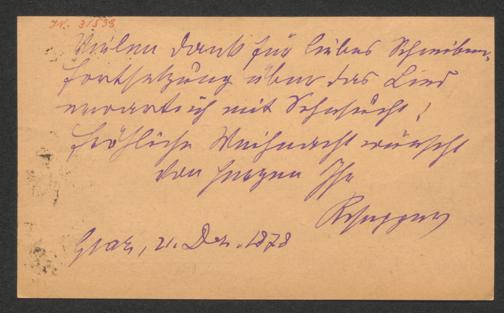 J.N. 31538
Vielen Dank für liebes Schreiben.
Fortsetzung über das Lied
erwarte ich mit Sehnsucht!
Fröhliche Weihnacht wünscht
von Herzen Ihr
Graz, 21. Dez. 1878